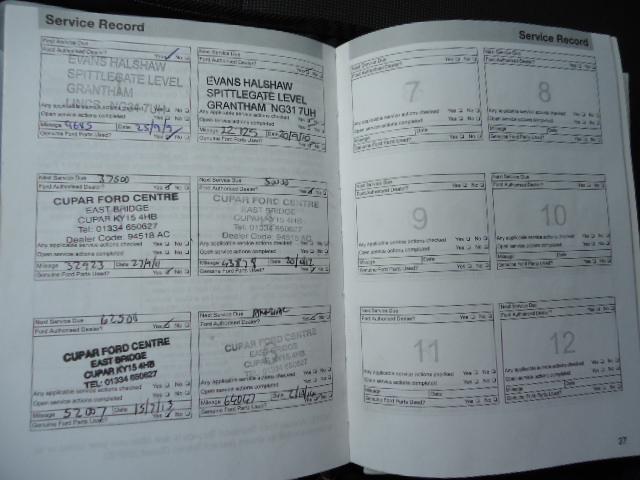 Service Record
First Service Due
Ford Authorised Dealer? Yes No
EVANS HALSHAW
SPITTLEGATE LEVEL
GRANTHAM
LINCS NG31 7UH
Any applicable service actions checked Yes No
Open service actions completed Yes No
Mileage 9685 Date 25/9/9
Genuine Ford Parts Used? Yes No
Next Service Due
Ford Authorised Dealer? Yes No
EVANS HALSHAW
SPITTLEGATE LEVEL
GRANTHAM NG31 7UH
Any applicable service actions checked Yes No
Open service actions completed Yes No
Mileage 22725 Date 20/9/10
Genuine Ford Parts Used? Yes No
Next Service Due 37500
Ford Authorised Dealer? Yes No
CUPAR FORD CENTRE
EAST BRIDGE
CUPAR KY15 4HB
Tel: 01334 650627
Dealer Code: 94518 AC
Any applicable service actions checked Yes No
Open service actions completed Yes No
Mileage 32923 Date 27/9/11
Genuine Ford Parts Used? Yes No
Next Service Due 50000
Ford Authorised Dealer? Yes No
CUPAR FORD CENTRE
EAST BRIDGE
CUPAR KY15 4HB
Tel: 01334 650627
Dealer Code: 94518 AC
Any applicable service actions checked Yes No
Open service actions completed Yes No
Mileage Date
Genuine Ford Parts Used? Yes No
Next Service Due 62500
Ford Authorised Dealer? Yes No
CUPAR FORD CENTRE
EAST BRIDGE
CUPAR KY15 4HB
TEL: 01334 650627
Any applicable service actions checked Yes No
Open service actions completed Yes No
Mileage 52007 Date 15/7/13
Genuine Ford Parts Used? Yes No
Next Service Due
Ford Authorised Dealer? Yes No
CUPAR FORD CENTRE
EAST BRIDGE
CUPAR KY15 4HB
TEL: 01334 650627
Any applicable service actions checked Yes No
Open service actions completed Yes No
Mileage Date
Genuine Ford Parts Used? Yes No
Service Record
Next Service Due
Ford Authorised Dealer? Yes No
7
Any applicable service actions checked Yes No
Open service actions completed Yes No
Mileage Date
Genuine Ford Parts Used? Yes No
Next Service Due
Ford Authorised Dealer? Yes No
8
Any applicable service actions checked Yes No
Open service actions completed Yes No
Mileage Date
Genuine Ford Parts Used? Yes No
Next Service Due
Ford Authorised Dealer? Yes No
9
Any applicable service actions checked Yes No
Open service actions completed Yes No
Mileage Date
Genuine Ford Parts Used? Yes No
Next Service Due
Ford Authorised Dealer? Yes No
10
Any applicable service actions checked Yes No
Open service actions completed Yes No
Mileage Date
Genuine Ford Parts Used? Yes No
Next Service Due
Ford Authorised Dealer? Yes No
11
Any applicable service actions checked Yes No
Open service actions completed Yes No
Mileage Date
Genuine Ford Parts Used? Yes No
Next Service Due
Ford Authorised Dealer? Yes No
12
Any applicable service actions checked Yes No
Open service actions completed Yes No
Mileage Date
Genuine Ford Parts Used? Yes No
37